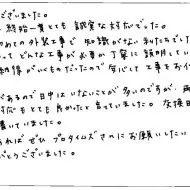 ございました。
終始一貫とても誠実な対応でした。
めての外装工事で知識がない私たちでした
って どんな工事が必要か丁寧に説明してい
納得がいくものだったので 安心して工事をお任
があるので日中はいないことが多いのですが、両
対応もとても良かったと言っていました。交換日
書いていました。
あれば ぜひ プロタイムズさんにお願いしたい
がとうございました。